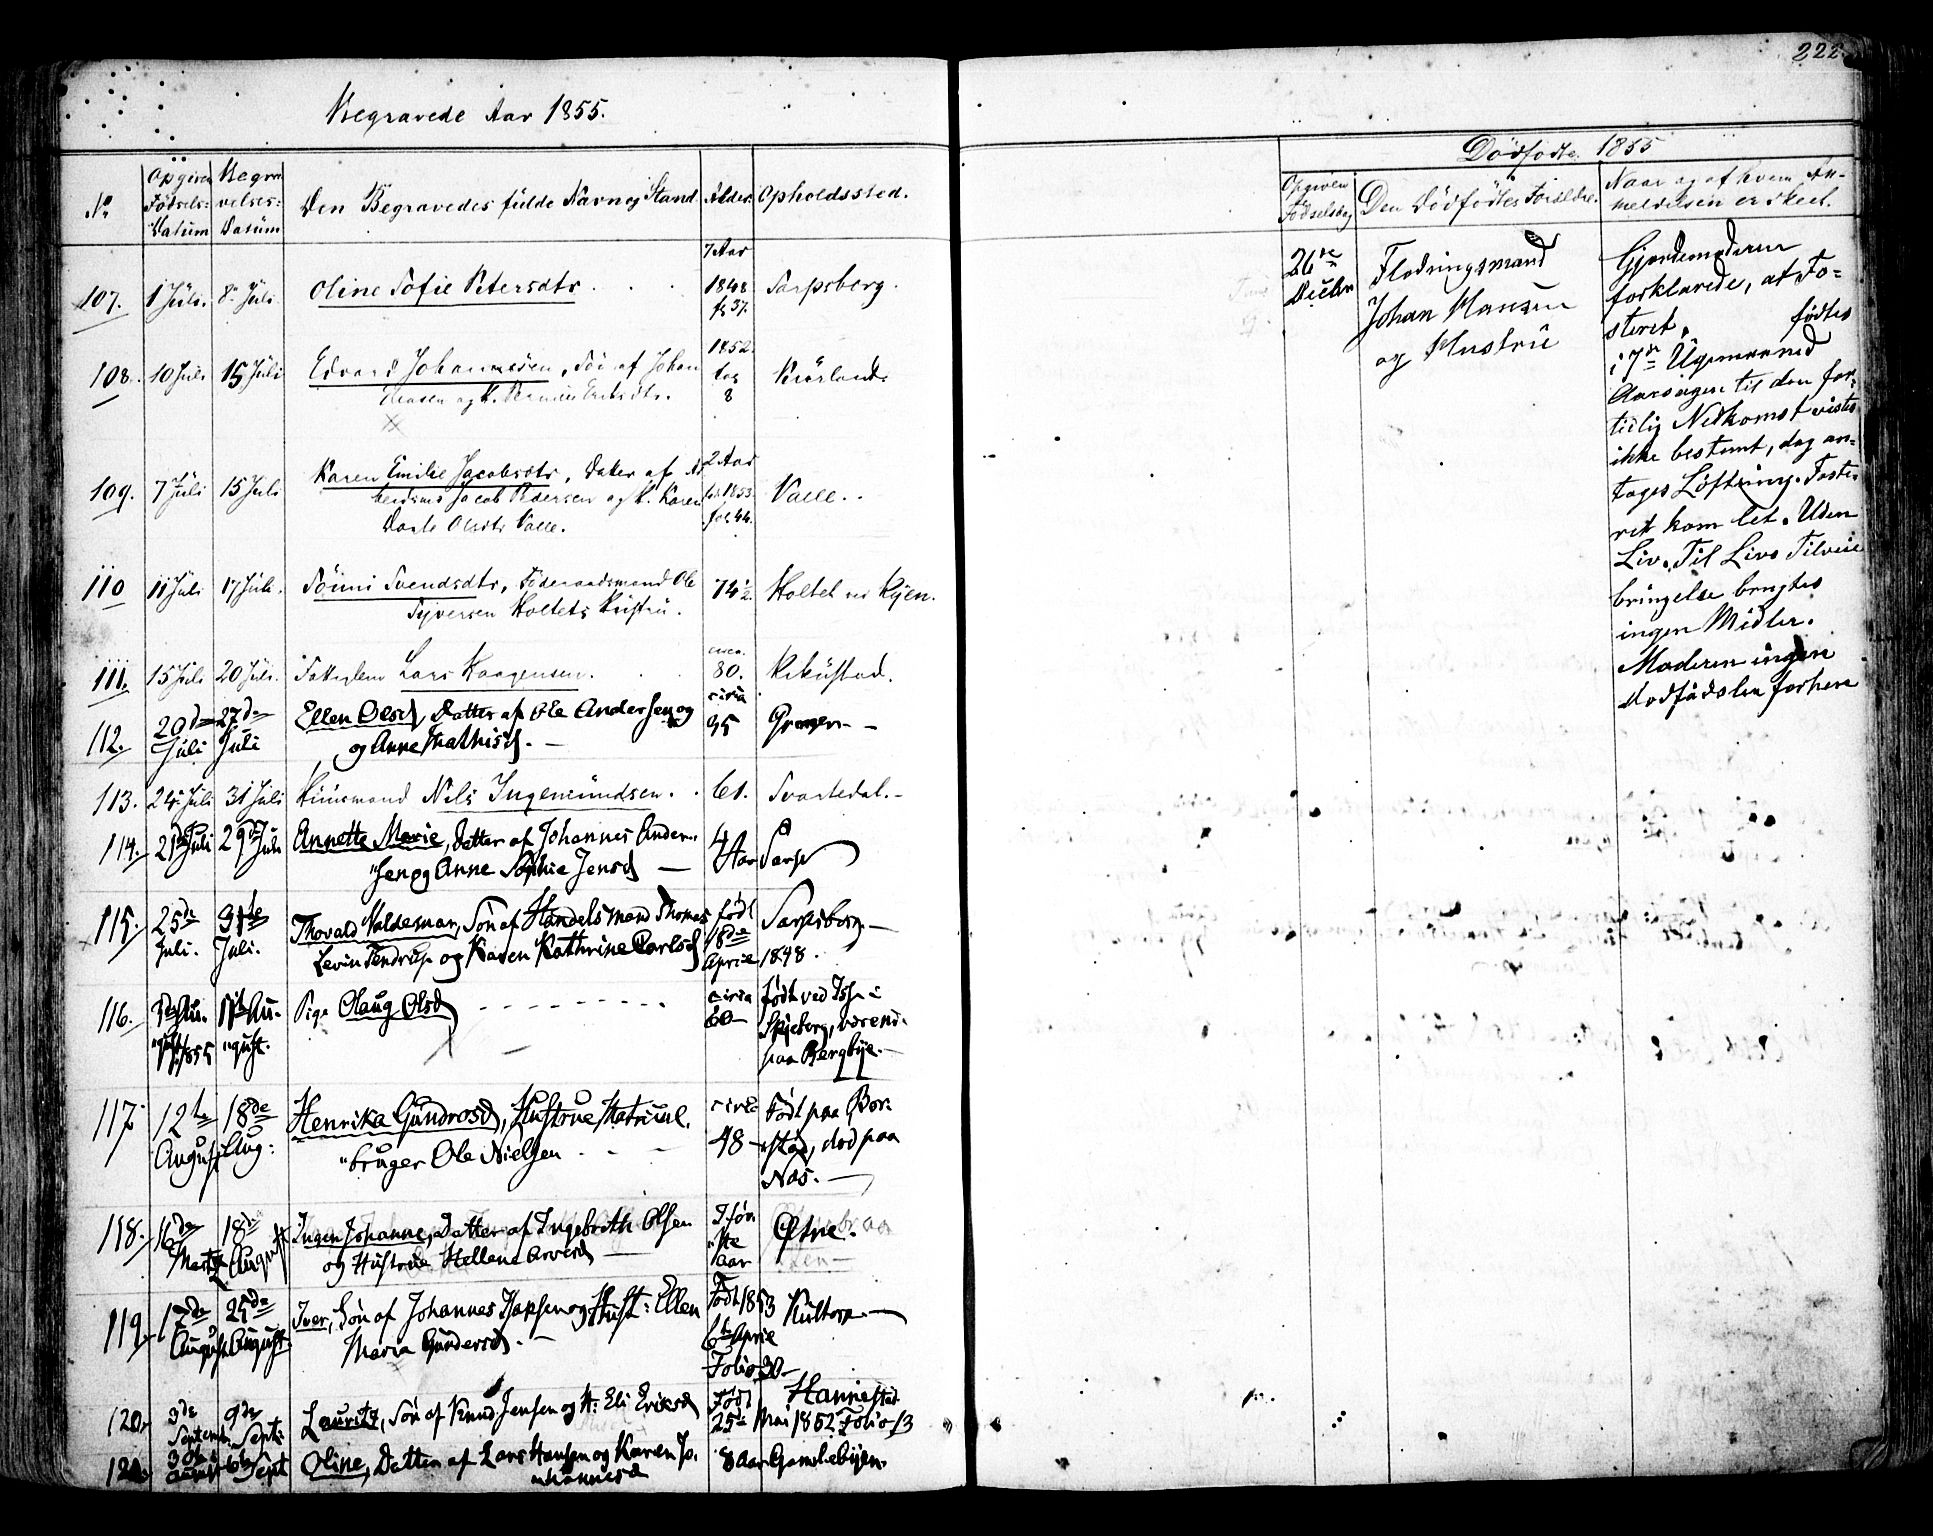 222
Begravede Aar 1855.
No
Opgiven Fødsels- Datum
Begravelses- Datum
Den Begravedes fulde Navn og Stand
Alder.
Opholdssted.
107. 1 Juli. 8de Juli Oline Sofie Petersdtr 7 Aar 1848 fo 37. Sarpsborg.
108. 10 Juli 15 Juli Edvard Johannesen, Søn af Johan
1852 8
109. 7 Juli 15 Juli Karen Emilie Jacobsdtr, Datter af Ar-
beidsm: Jacob Pedersen og H. Karen
Dorte Olsdtr Valle.
2 Aar 1853 fol 44. Valle.
110 11 Juli 17 Juli. Svendsdtr, Føderaadsmand Ole
Syversen Holtets Hustru.
74½ Holtet
111. 15 Juli 20 Juli. Fattiglem Lars Haagensen. circa 80.
112. 20de Juli 27de Juli Ellen Olsd, Datter af Ole Andersen og
og Anne Mathisd. —
circa 95
113. 24 Juli 31 Juli Huusmand Nils Ingemundsen. 61. Svartedal. -
114. 21de Juli 29de Juli Annette Marie, Datter af Johannes Ander-
"sen og Anne Sophie Jensd —
4 Aar Sarp
115. 25de Juli. 31te Juli. Thorvald Valdemar, Søn af Handelsmand Thomas
Levin og Karen Kathrine Carlsd
født 18de April 1848. Sarpsborg —
116. August 1855 August. Pige Olaug Olsd
circa 60 født ved i
Skjeberg, værend.
paa Bergbye. —
117. 12te August 18de Aug: Henrika Gundrosd, Hustrue Matricul.
"bruger Ole Nielsen
circa 48 Født paa Bor-
stad, død paa
Næs. —
118. 16de 18de August Ingen Johanne, Datter af Ingebreth Olsen
og Hustrue Hellene Arvesd —
I før-
"ste
aar
119. 17de August 25de August. Iver, Søn af Johannes og Hust: Ellen
Maria Gundersd. —
Født 1853
6te April
Folio 30 —
120. 3de Septemb. 9de Sept: Lauritz, Søn af Knud Jensen og H: Eli Eriksd
Født 25de Mai 1852 Folio 13 Hannestad
121. August Sept Oline, Datter af Lars Hansen og Karen Jo-
hannesd
8 aar Gamlebyen.
Dødfødte. 1855
Opgiven Fødselsdag
Den Dødfødtes Forældre.
Naar og af hvem An-
meldelsen er skeet.
26de Decbr
Flodringsmand
Johan Hansen
og Hustru
Gjordemoderen
forklarede, at Fo-
steret, fødtes
i 7de Ugemaaned
Aarsagen til den for-
tidlig Nedkomst vistes
ikke bestemt, dog an-
tages Løftning. Foste-
ret kom let. Uden
Liv. Til Livs Tilveie
bringelse brugtes
ingen Midler.
Moderen ingen
dødfødslen forhen